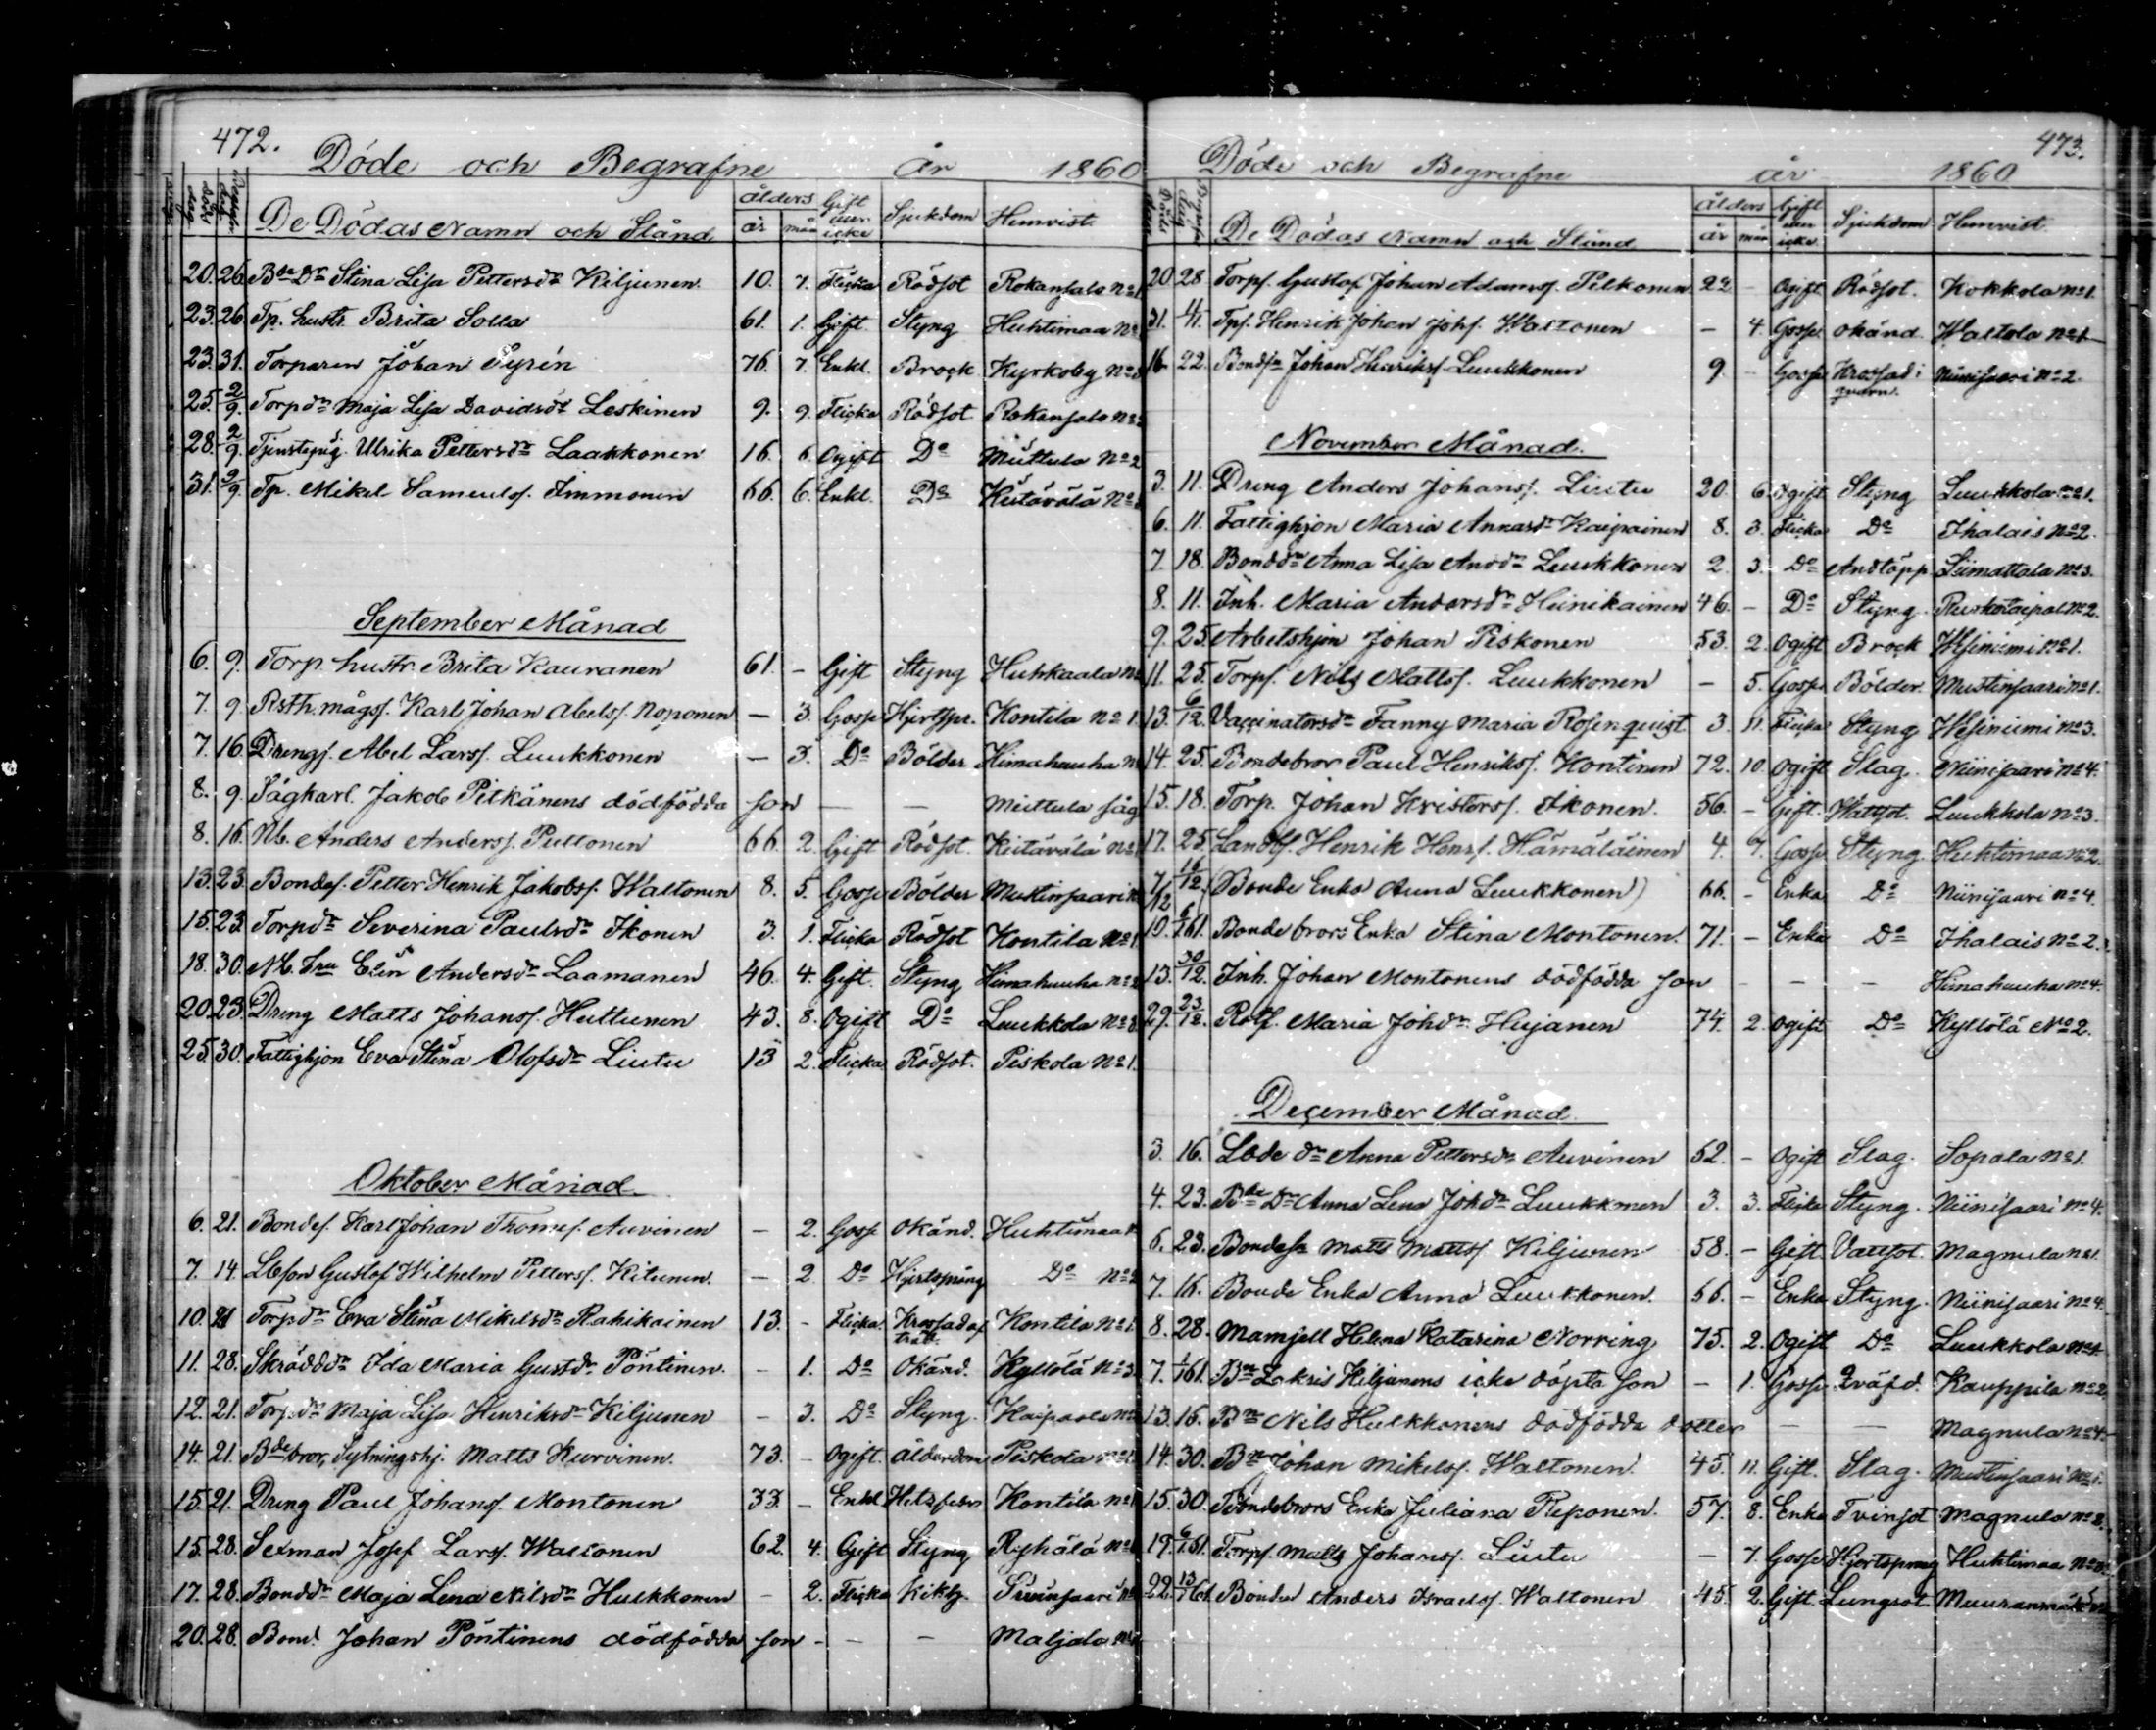 472.
Döde och Begrafne år 1860
De Dödas Namn och Stånd ålders år mån Gift eller icke Sjukdom Hemvist
20. 26. Bde Dr Stina Lisa Pettersdr Kiljunen. 10. 7. Flicka Rödsot Rokansalo No 1
23. 26. Tp. hustr. Brita Solla 61. 1. Gift Styng Huhtimaa No
23. 31. Torparen Johan Syrén 76. 7. Enkl. Bråck Kyrkoby No
25. 2/9. Torpdr Maja Lisa Davidsdr Leskinen 9. 9. Flicka Rödsot Rokansalo No
28. 2/9. Tjensteqvig. Ulrika Pettersdr Laakkonen 16. 6. Ogift Do Miettula No 2
31. 2/9. Tp. Mikel Samuelss. Immonen 66. 6. Enkl. Do Kietävälä No
September Månad
6. 9. Torp. hustr. Brita Kauranen 61. - Gift Styng Huhkaala No
7. 9. Rsth. mågs. Karl Johan Abels. Noponen — 3. Gosse Hjertspr. Kontila No 1.
7. 16. Drengs. Abel Larss. Luukkonen — 3. Do Bölder Kimahauha No
8. 9. Sågkarl. Jakob Pitkänens dödfödda son — — Miettula såg
8. 16. Nb. Anders Anderss. Puttonen 66. 2. Gift Rödsot. Kietävälä No
13. 23. Bondes. Petter Henrik Jakobss. Waltonen 8. 5. Gosse Bölder Mustinsaari No
15. 23. Torpdr Severina Paulsdr Ikonen 3. 1. Flicka Rödsot Kontila No 1.
18. 30. Nb. Fru Elin Andersdr Laamanen 46. 4. Gift. Styng Kimahauha No 2
20. 23. Dreng Matts Johanss. Huttunen 43. 8. Ogift Do Luukkola No 3.
25. 30. Fattighjon Eva Stina Olofsdr Liutu 13 2. Flicka Rödsot. Piskola No 1.
Oktober Månad
6. 21. Bondes. Karl Johan Thomess. Auvinen — 2. Gosse Okänd. Huhtimaa
7. 14. Lbson Gustaf Wilhelm Petterss. Kitunen. — 2. Do Hjertspräng Do No
10. 21 Torpdr Eva Stina Mikelsdr Rahikainen 13. - Flicka. Krossad af träd. Kontila No 1.
11. 28. Skräddr Ida Maria Gustdr Pöntinen. - 1. Do Okänd. Kyllölä No 3
12. 21. Torpdr Maja Lisa Henriksdr Kiljunen - 3. Do Styng. Kaipaala No
14. 21. Bde bror, Sytningshj. Matts Kurvinen. 73. - Ogift. ålderdom Piskola No 1.
15. 21. Dreng Paul Johanss. Montonen 33. - Enkl Hetsfeber Kontila No 1
15. 28. Sexman Josef Larss. Waltonen 62. 4. Gift Styng Ryhälä No
17. 28. Bonddr Maja Lena Nilsdr Hulkkonen - 2. Flicka Kikh. Niinisaari No
20. 28. Bond. Johan Pöntinens dödfödda son - - - Maljala No
473.
Döde och Begrafne år 1860
De Dödas Namn och Stånd ålders år mån Gift eller icke Sjukdom Hemvist
20. 28 Torps. Gustaf Johan Adamss. Pelkonen 22 - Ogift Rödsot. Kokkola No 1.
31. 4/11. Tps. Henrik Johan Johs. Waltonen — 4. Gosse okänd. Waltola No 1
16. 22. Bondsn Johan Henrikss. Luukkonen 9. - Gosse Krossad i qvarn. Niinisaari No 2.
November Månad.
3. 11. Dreng Anders Johanss. Liutu 20. 6. Ogift Styng Luukkola No 1.
6. 11. Fattighjon Maria Annasdr Kaipainen 8. 3. Flicka Do Ihalais No 2.
7. 18. Bonddr Anna Lisa Andr Luukkonen 2. 3. Do Andtäpp. Liimattala No 3.
8. 11. Inh. Maria Andersdr Heinikainen 46. - Do Styng. Ruokotaipal No 2.
9. 25. Arbetshjon Johan Piskonen 53. 2. Ogift Bråck Wesiniemi No 1.
11. 25. Torps. Nils Mattss. Luukkonen — 5. Gosse Bölder. Mustinsaari No 1.
13. 6/12. Vaccinatorsdr Fanny Maria Rosenquist 3 11. Flicka Styng Wesiniemi No 3.
14. 25. Bondebror Paul Henrikss. Kontinen 72. 10. Ogift Slag. Niinisaari No 4.
15. 18. Torp. Johan Kristerss. Ikonen. 56. - Gift. Wattsot. Luukkola No 3.
17. 25. Landbs. Henrik Henrs. Hämäläinen 4. 7. Gosse Styng. Huhtimaa No 2.
7/12 16/12 (Bonde Enka Anna Luukkonen) 66. - Enka Do Niinisaari No 4.
19. 6/1 61. Bonde brors Enka Stina Montonen. 71. - Enka Do Ihalais No 2.
13. 30/12. Inh. Johan Montonens dödfödda son - - - Kimahauha No 4.
29. 23/12. Rotf. Maria Johdr Hujanen 74. 2. Ogift Do Kyllölä No 2.
December Månad.
3. 16. Lbde dr Anna Pettersdr Auvinen 52. - Ogift Slag. Sopala No 1.
4. 23. Bde Dr Anna Lena Johdr Luukkonen 3. 3. Flicka Styng. Niinisaari No 4.
6. 23. Bondesn Matts Mattss. Kiljunen 58. - Gift Vattsot. Magnula No 1.
7. 16. Bonde Enka Anna Luukkonen. 66. - Enka Styng. Niinisaari No 4.
8. 28. Mamsell Helena Katarina Norring 75. 2. Ogift Do Luukkola No 4.
7. 1/1 61. Bn Zakris Kiljunens icke döpta son - 1. Gosse Qväfd. Kauppila No 2.
13. 16. Bn Nils Hulkkonens dödfödda dotter — — Magnula No 4.
14. 30. Bn Johan Mikelss. Waltonen. 45. 11. Gift. Slag. Mustinsaari No 1.
15. 30. Bondebrors Enka Juliana Reponen. 57. 8. Enka Tvinsot Magnula No 2.
19. 6/1 61. Torps. Matts Johanss. Liutu - 7. Gosse Hjertsprang Huhtimaa No
22. 13/1 61. Bonden Anders Israelss. Waltonen 45. 2. Gift. Lungsot. Muuranmäki